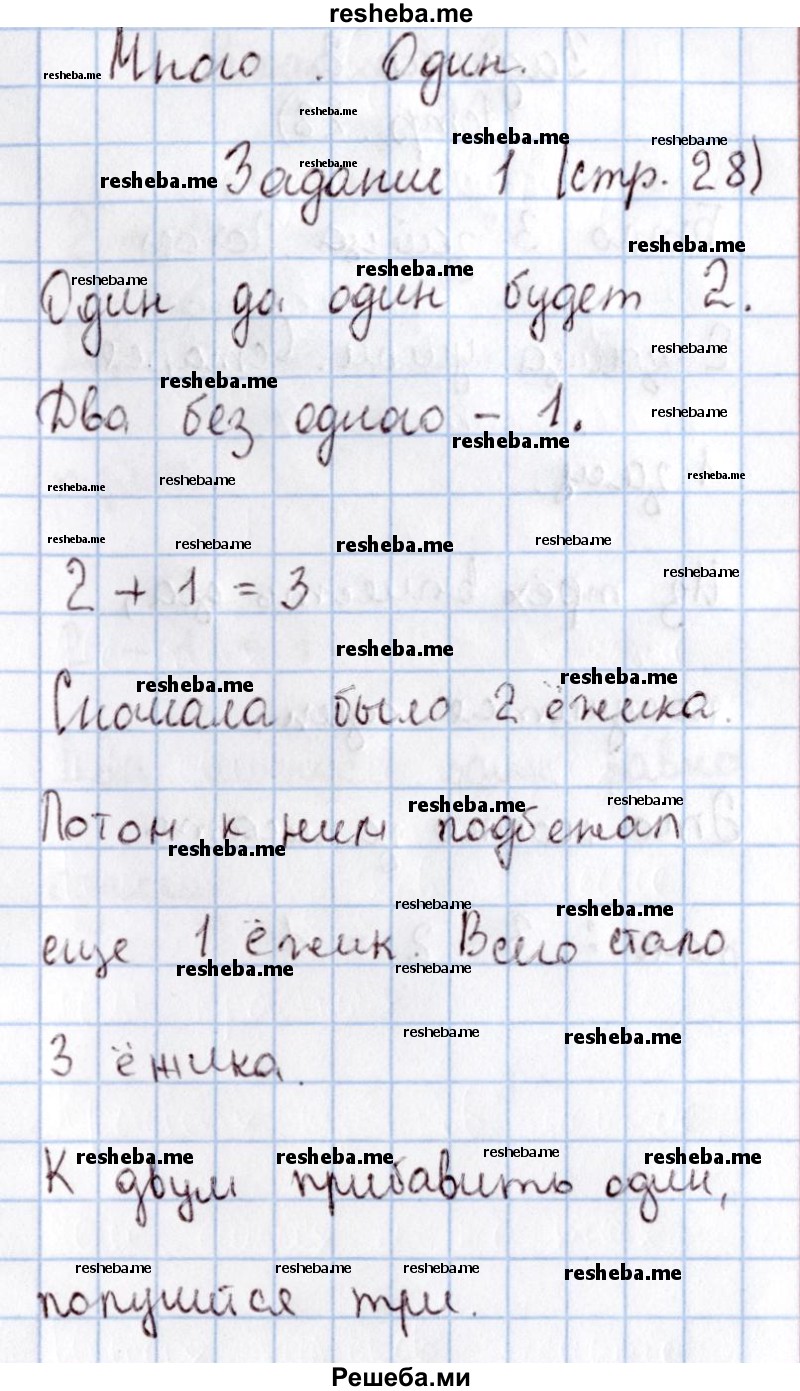 resheba.me
Много . Один.
Задание 1 (стр. 28)
Один да один будет 2.
Два без одного – 1.
2 + 1 = 3
Сначала было 2 ёжика.
Потом к ним подбежал
еще 1 ёжик. Всего стало
3 ёжика.
К двум прибавить один,
получится три.
Решеба.ми